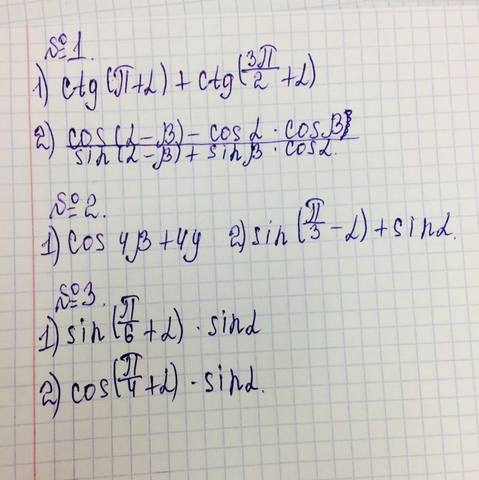 №1.
1) ctg(π+α) + ctg(3π/2 + α)
2) cos(α-β) - cos α · cos β / sin(α-β) + sin β · cos α.
№2.
1) cos 4β + 4y 2) sin(π/3 - α) + sin α.
№3.
1) sin(π/6 + α) · sin α
2) cos(π/4 + α) · sin α.